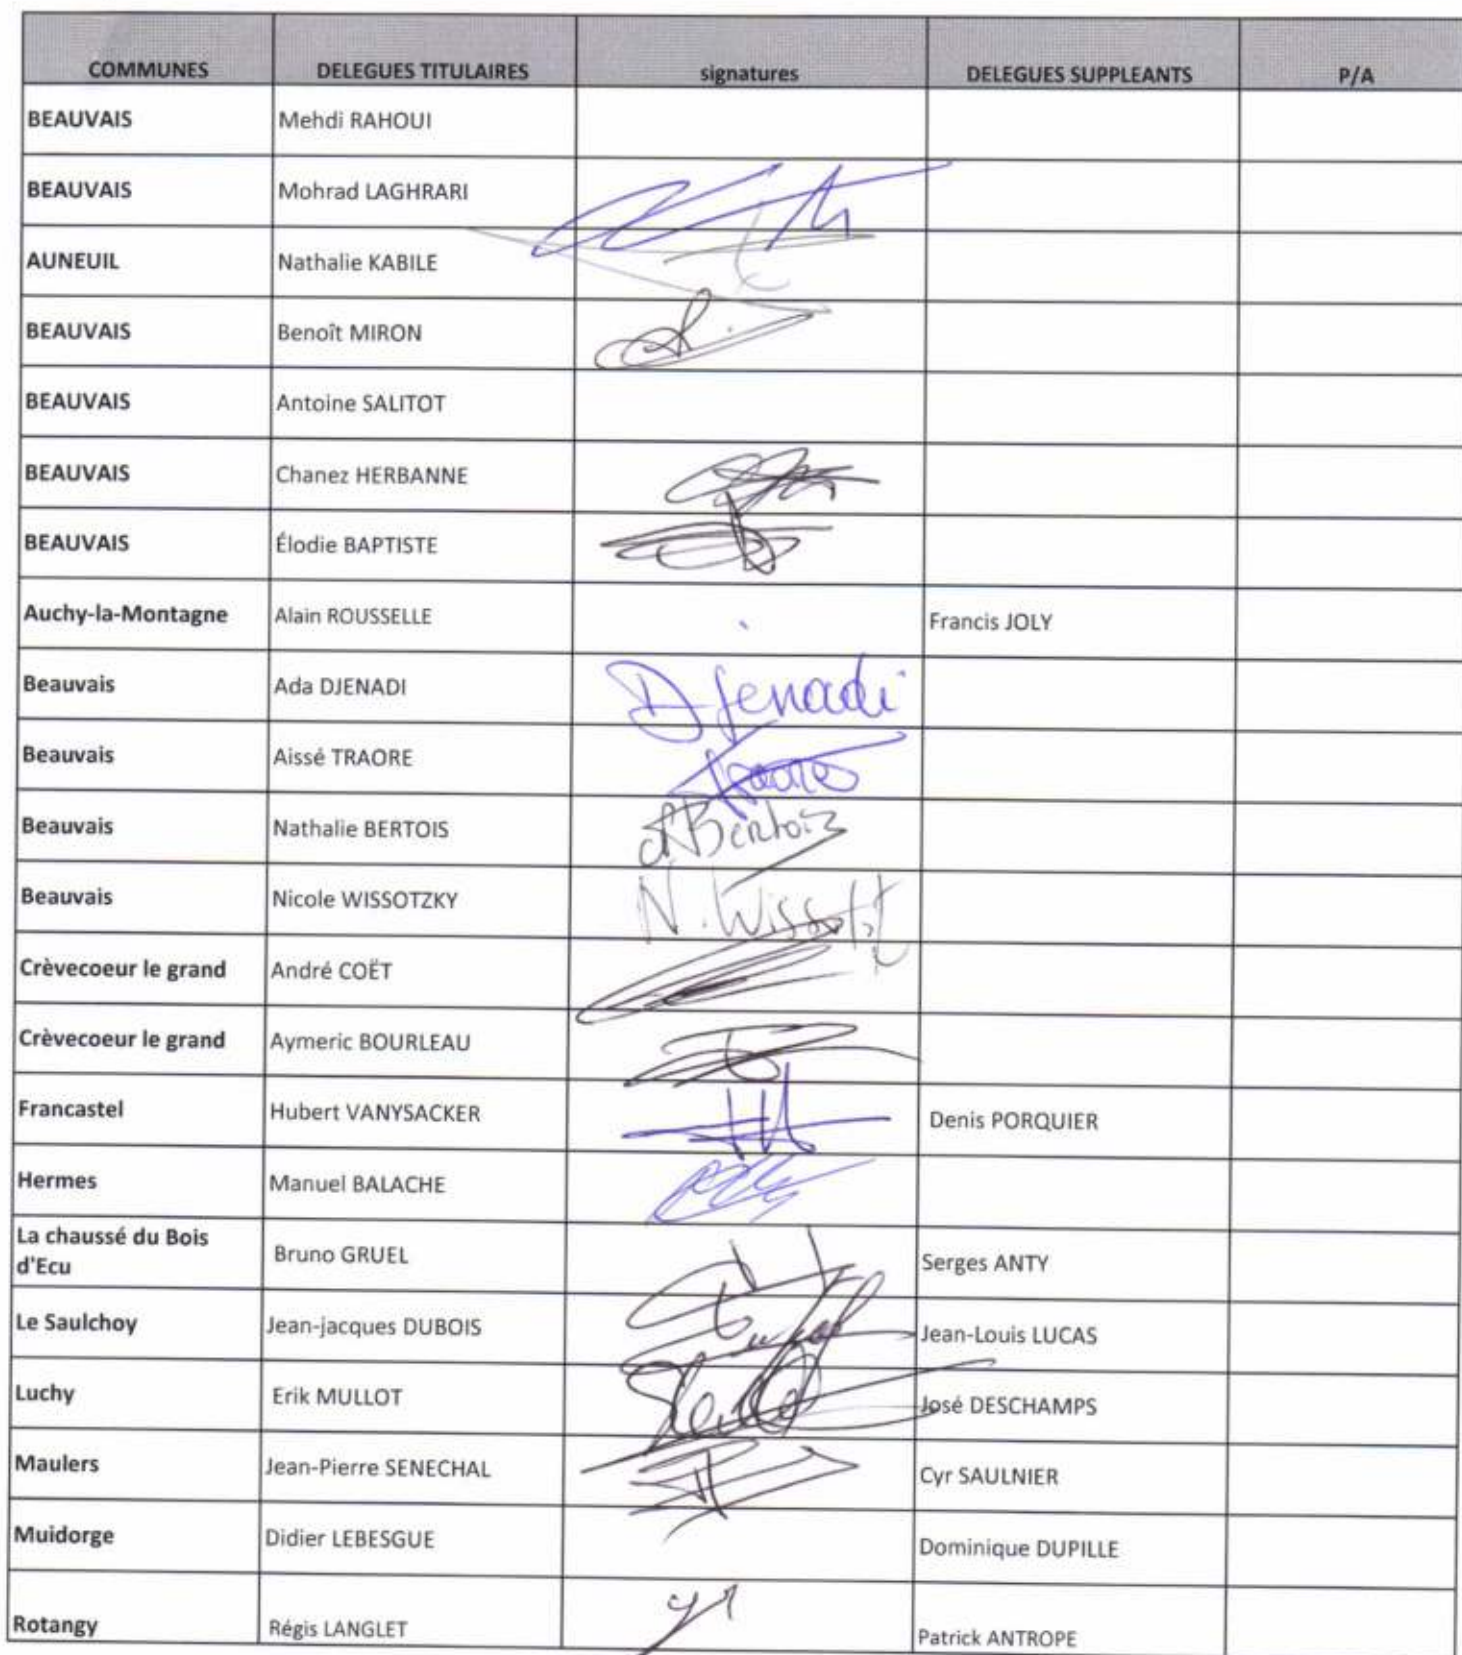 COMMUNES DELEGUES TITULAIRES signatures DELEGUES SUPPLEANTS P/A
BEAUVAIS Mehdi RAHOUI
BEAUVAIS Mohrad LAGHRARI
AUNEUIL Nathalie KABILE
BEAUVAIS Benoît MIRON
BEAUVAIS Antoine SALITOT
BEAUVAIS Chanez HERBANNE
BEAUVAIS Élodie BAPTISTE
Auchy-la-Montagne Alain ROUSSELLE Francis JOLY
Beauvais Ada DJENADI Djenadi
Beauvais Aissé TRAORE
Beauvais Nathalie BERTOIS Bertois
Beauvais Nicole WISSOTZKY N.
Crèvecoeur le grand André COËT
Crèvecoeur le grand Aymeric BOURLEAU
Francastel Hubert VANYSACKER Denis PORQUIER
Hermes Manuel BALACHE
La chaussé du Bois
d'Ecu Bruno GRUEL Serges ANTY
Le Saulchoy Jean-jacques DUBOIS Jean-Louis LUCAS
Luchy Erik MULLOT José DESCHAMPS
Maulers Jean-Pierre SENECHAL Cyr SAULNIER
Muidorge Didier LEBESGUE Dominique DUPILLE
Rotangy Régis LANGLET Patrick ANTROPE